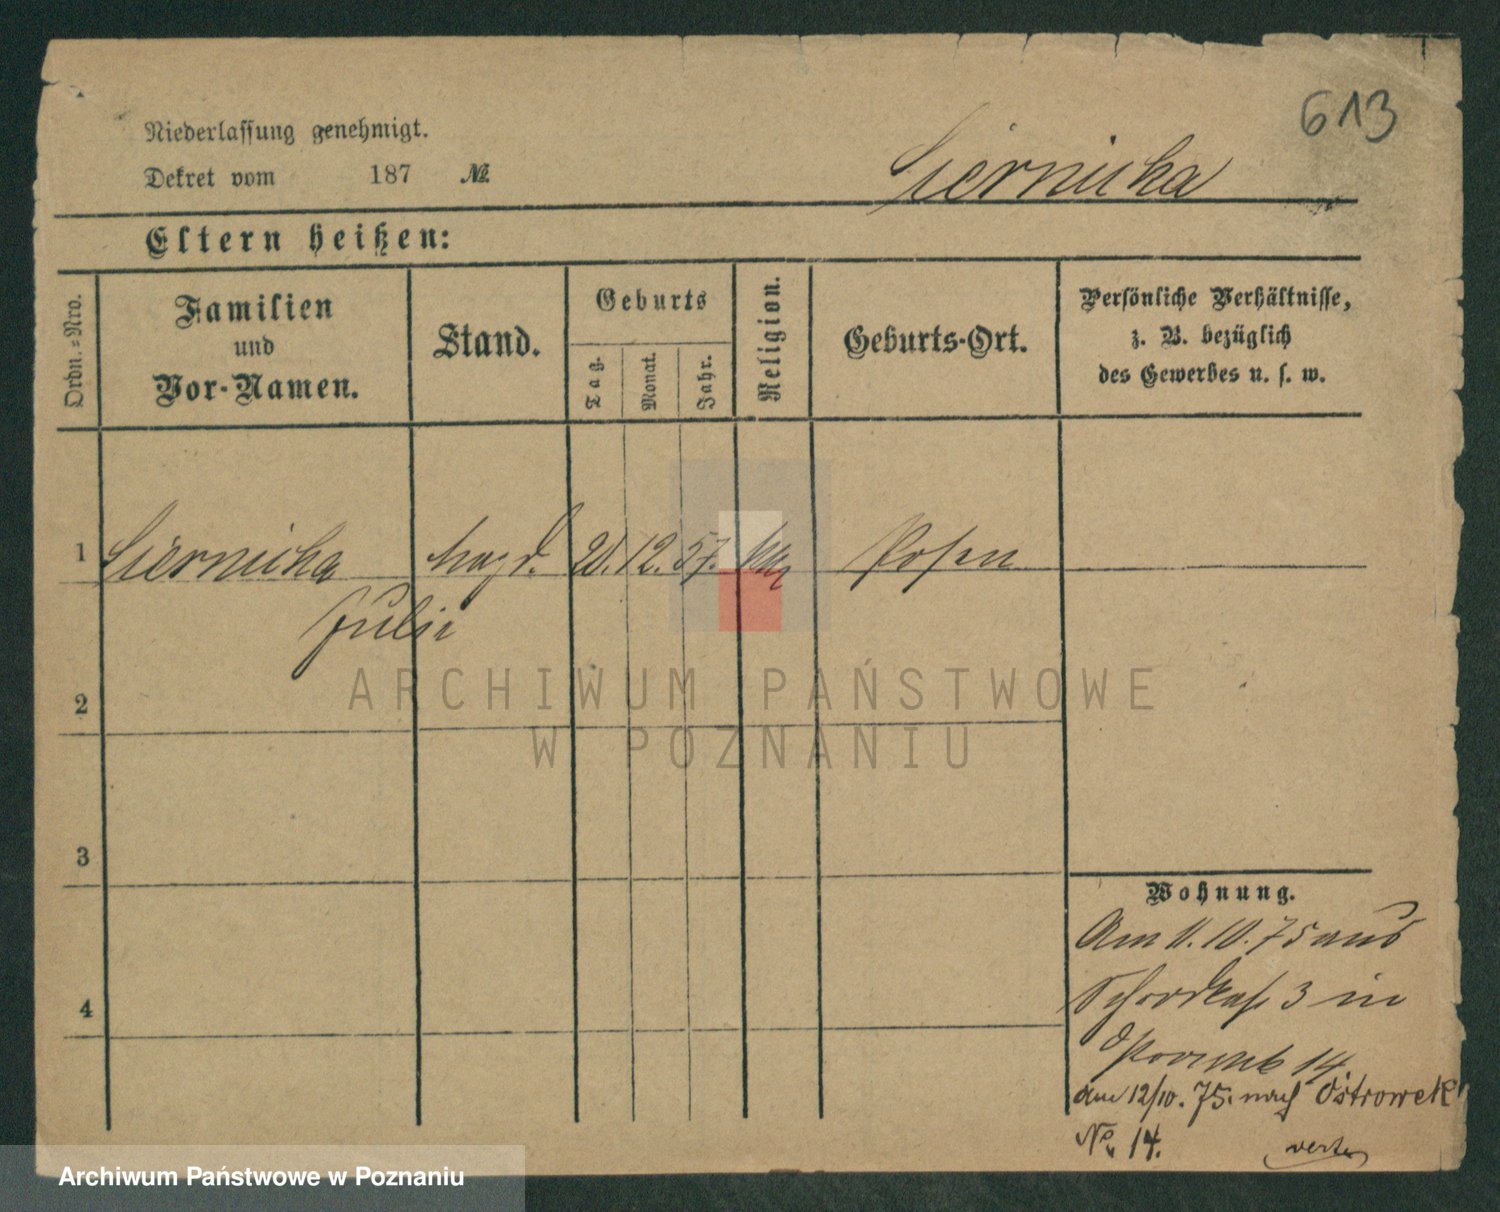 613
Niederlassung genehmigt.
Dekret vom 187 №
Siernicka
Eltern heißen:
Ordn.-Nro.
Familien
und
Vor-Namen.
Stand.
Geburts
Tag.
Monat.
Jahr.
Religion.
Geburts-Ort.
Persönliche Verhältnisse,
z. B. bezüglich
des Gewerbes u. s. w.
1 Siernicka Magd. 20. 12. 57. Posen
Julie
2
3
4
Wohnung.
Am 11. 10. 75 aus
3 in
14
am 12/10. 75. nach Ostrowek
No. 14.
verte
ARCHIWUM PAŃSTWOWE
W POZNANIU
Archiwum Państwowe w Poznaniu